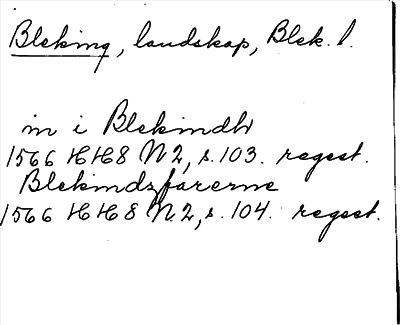 Bleking, landskap, Blek. l.
in i Blekindh
1566 HH8 N 2, s. 103. regest.
Blekindzfarerne
1566 HH8 N. 2, s. 104. regest.